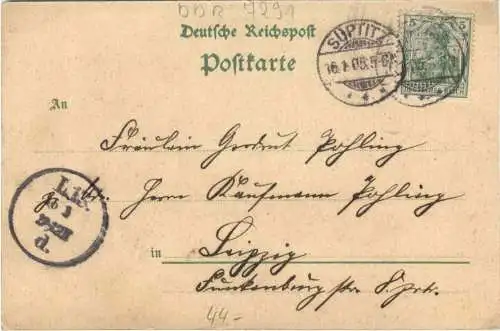 DDR 7291
Deutsche Reichspost
Postkarte
SÜPTITZ
5 5
An
Fräulein Gertrut Pohling
Herrn Kaufmann Pohling
in Leipzig
Funkenburgstr. 8. prt.
44.-